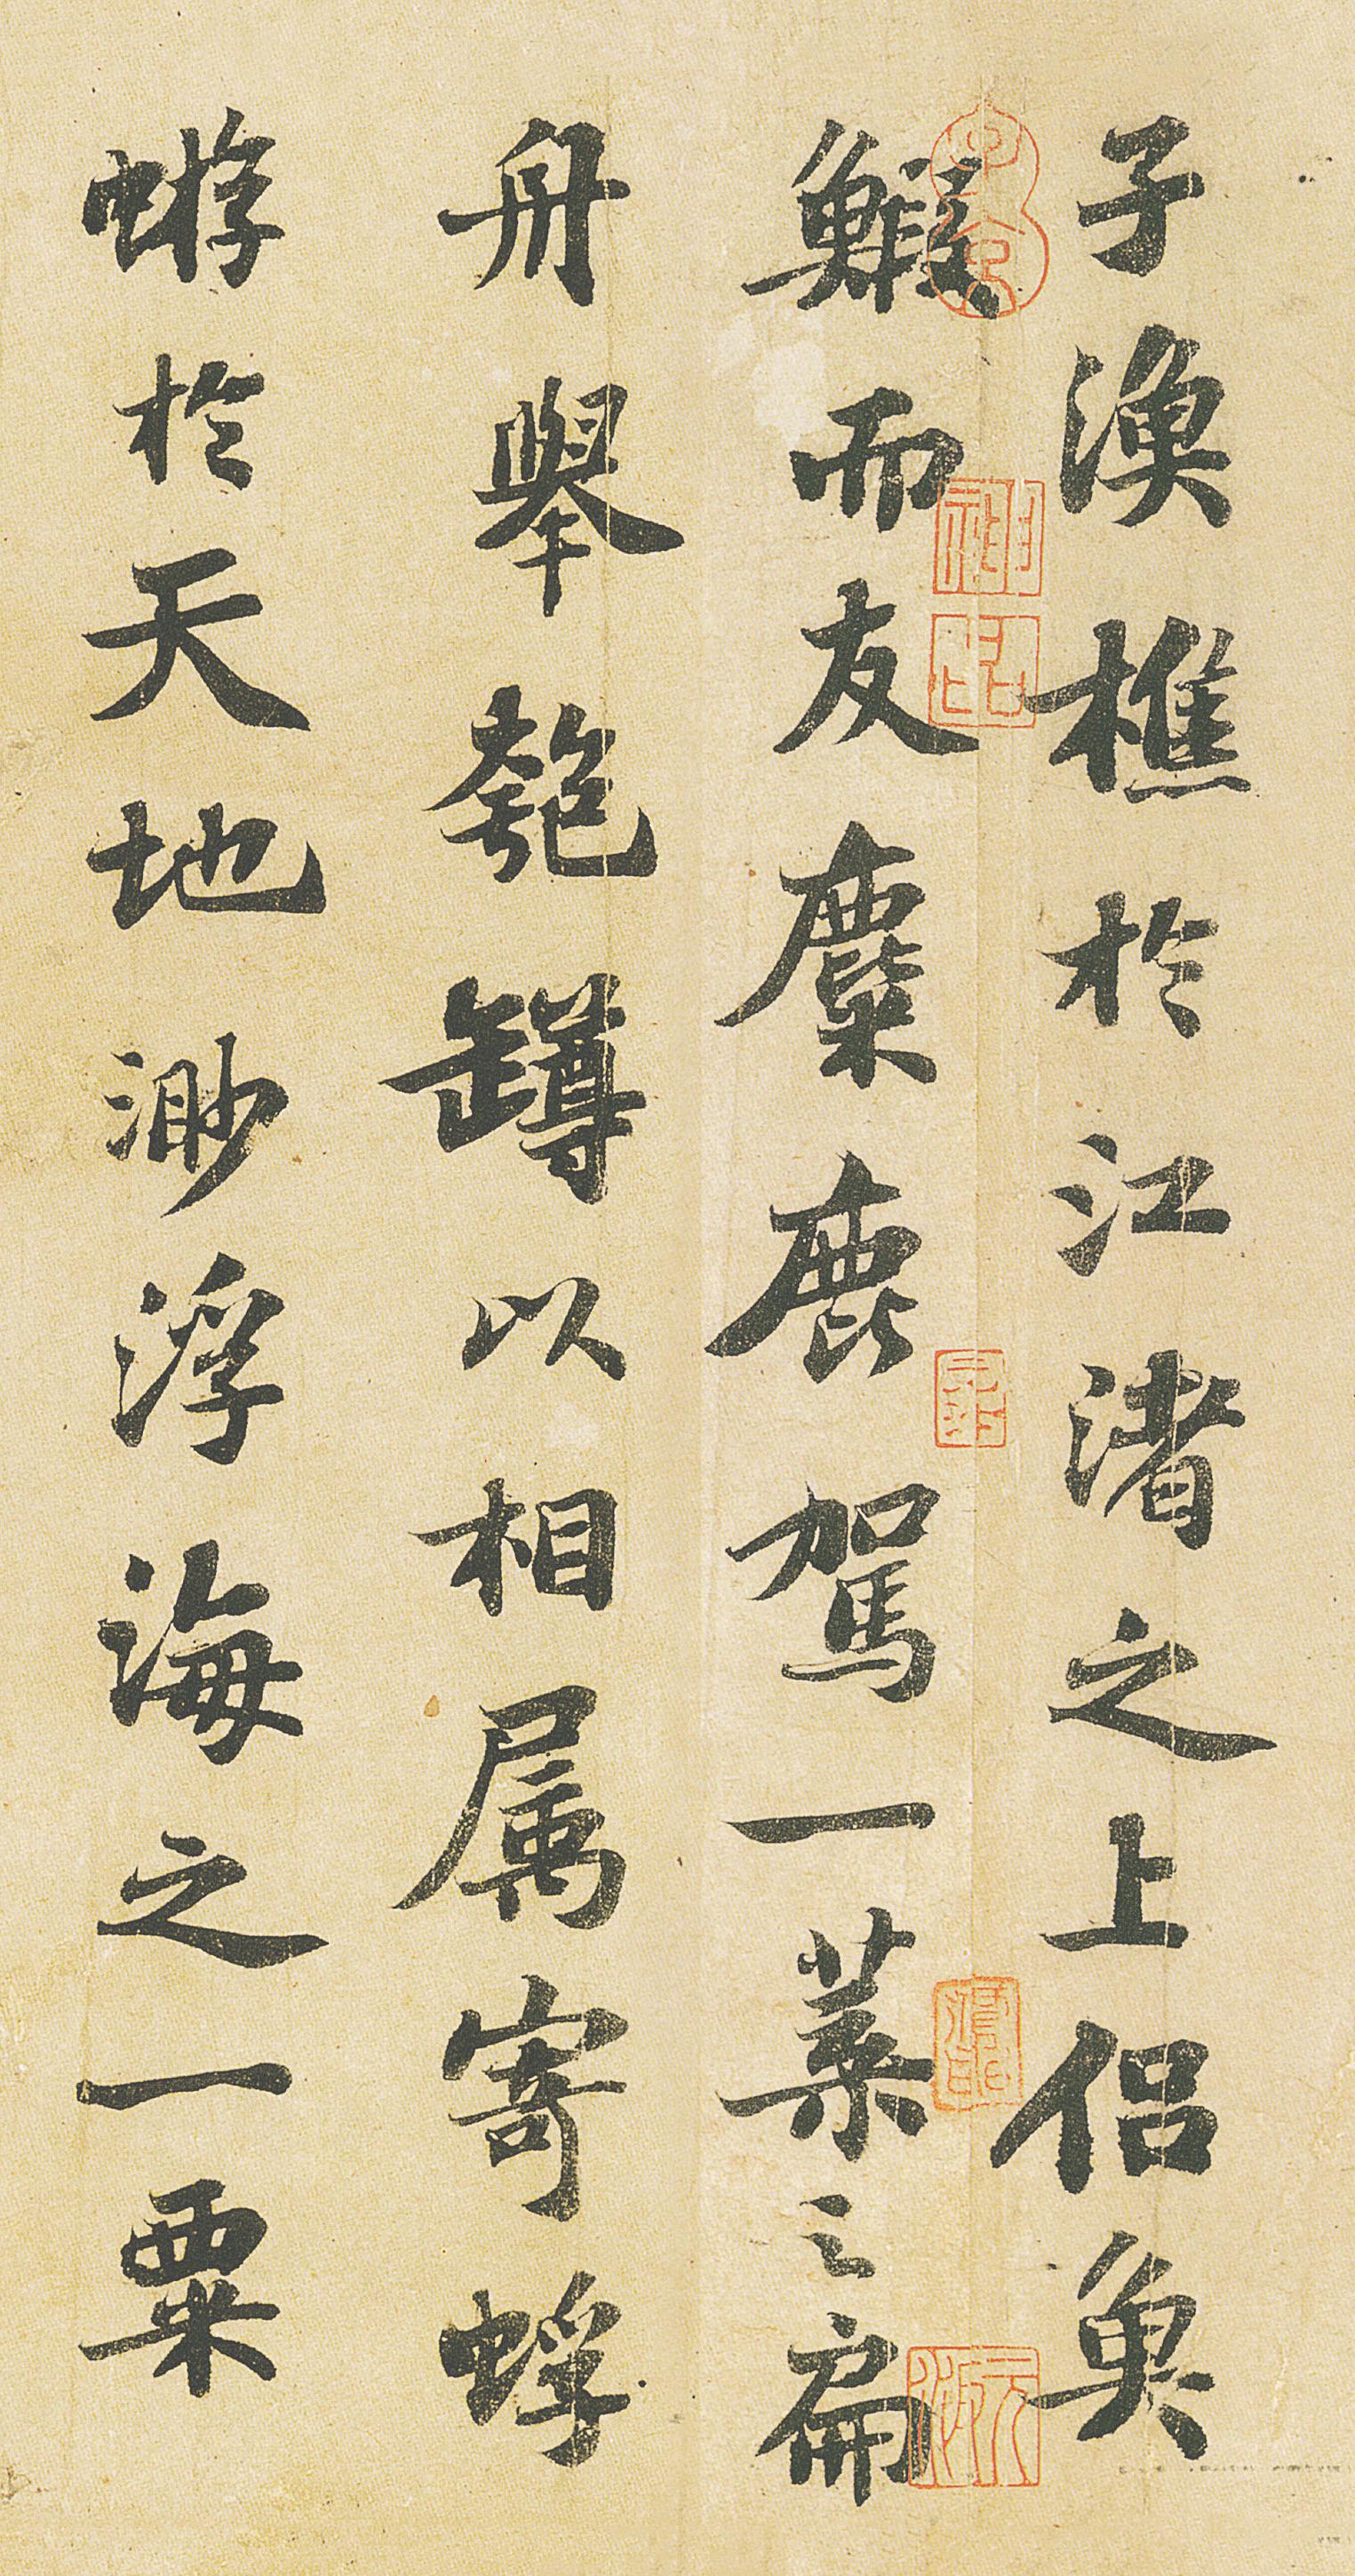 子漁樵於江渚之上侶魚
鰕而友麋鹿駕一葉之扁
舟舉匏罇以相属寄蜉
蝣於天地渺浮海之一粟